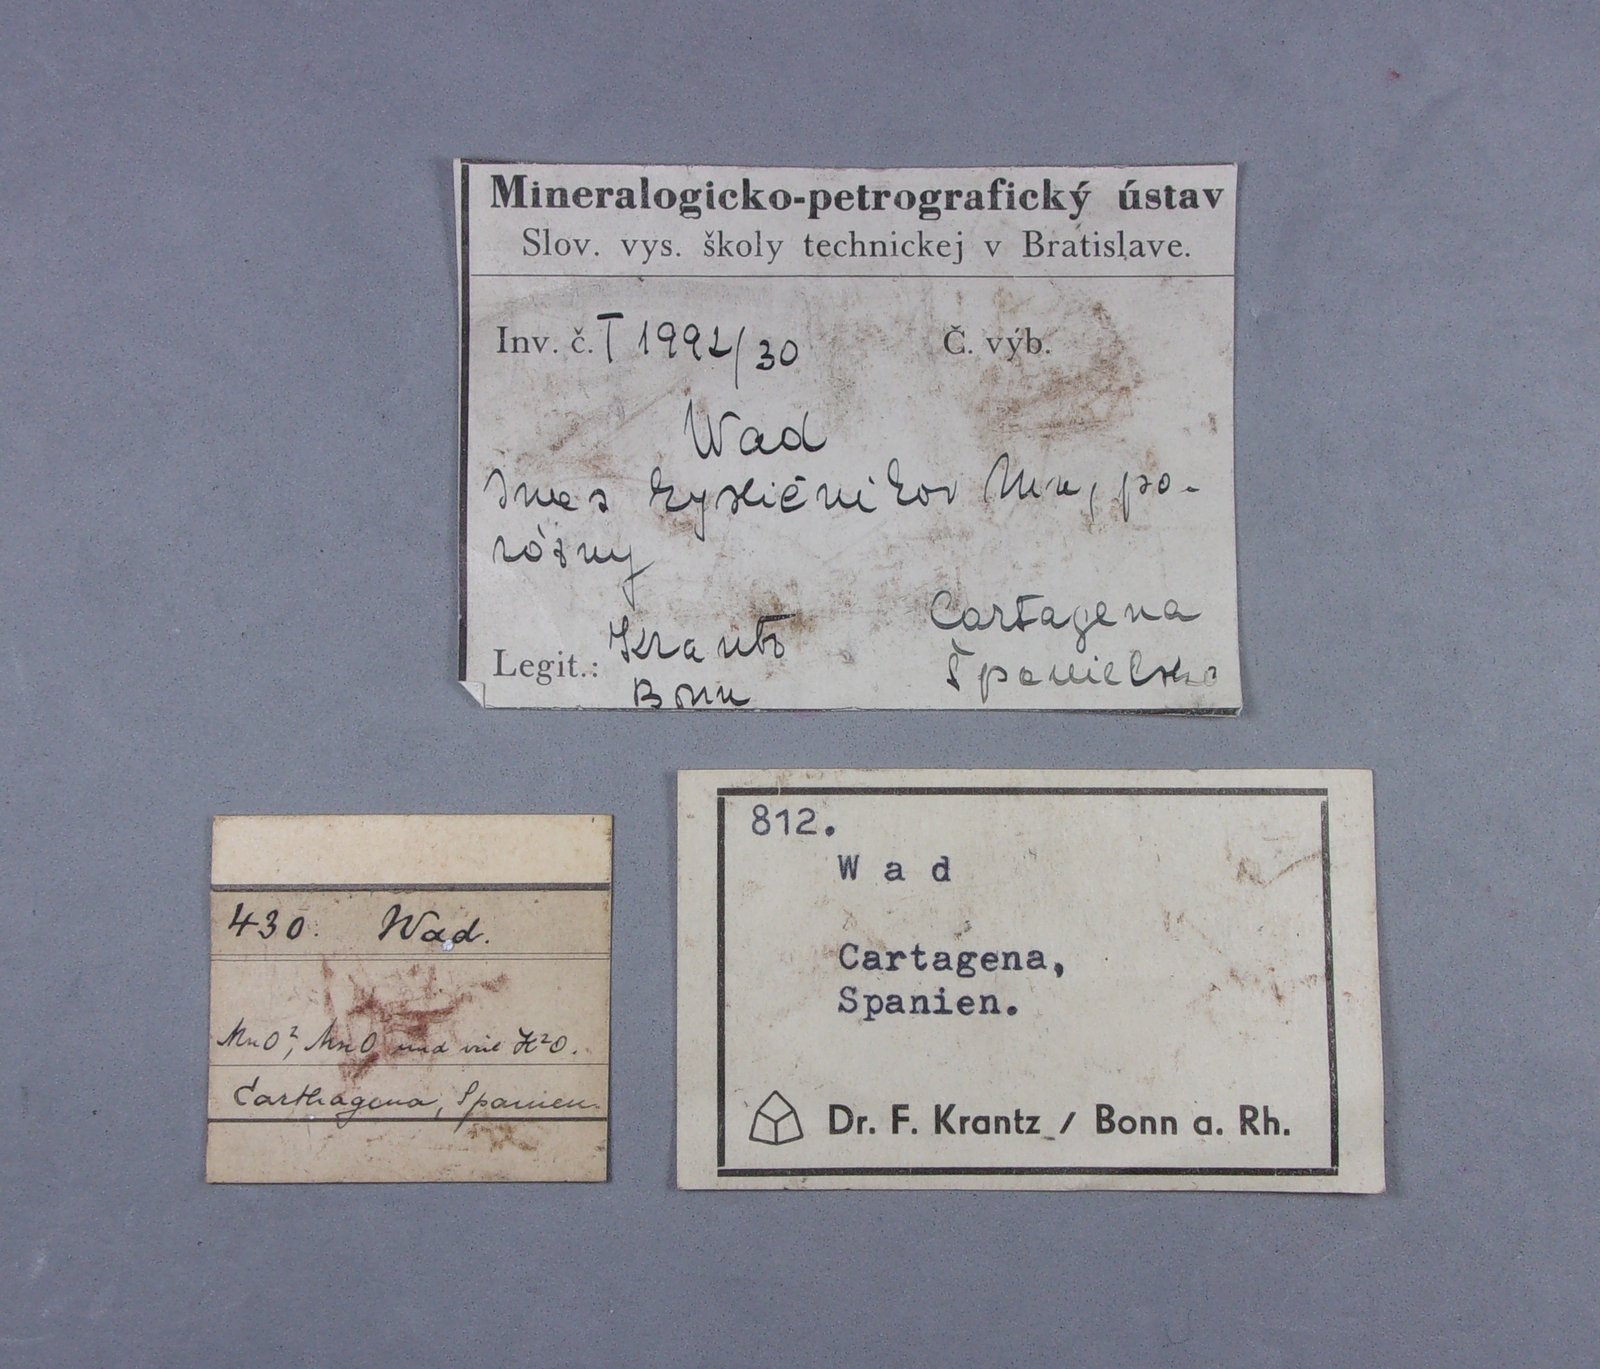 Mineralogicko-petrografický ústav
Slov. vys. školy technickej v Bratislave.
Inv. č. T 1992/30 Č. výb.
Wad
Smes kysličníkov Mn, po-
rózny
Cartagena
Španielsko
Legit.: Krantz
Bonn
430. Wad.
MnO², MnO und viel H²O.
Carthagena, Spanien.
812.
Wad
Cartagena,
Spanien.
Dr. F. Krantz / Bonn a. Rh.